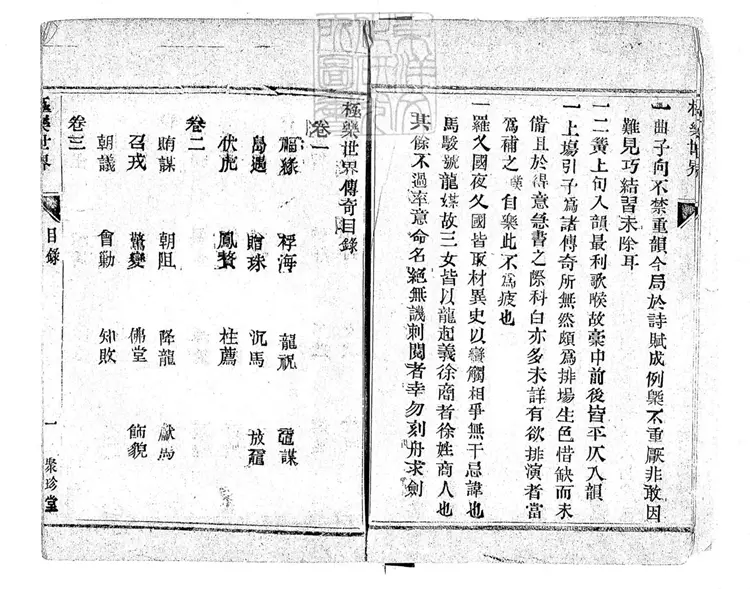 極樂世界
一曲子向不禁重韻今局於詩賦成例槩不重厭非敢因
難見巧結習未除耳
一二黃上句入韻最利歌喉故稾中前後皆平仄入韻
一上塲引子爲諸傳奇所無然頗爲排場生色惜缺而未
備且於得意急書之際科白亦多未詳有欲排演者當
爲補之僕自樂此不爲疲也
一羅乂國夜乂國皆取材異史以蠻觸相爭無干忌諱也
馬駿號龍媒故三女皆以龍起義徐商者徐姓商人也
其餘不過率意命名絕無譏刺閱者幸勿刻舟求劍
極樂世界傳奇目錄
卷一
福綠 桴海 龍祝 黿謀
島遇 贈珠 沉馬 放黿
伏虎 鳳贅 柱薦
卷二
賄謀 朝阻 降龍 獻馬
召戎 驚變 佛堂 飾貌
朝議 會勦 知敗
卷三
極樂世界 目錄 一 聚珍堂